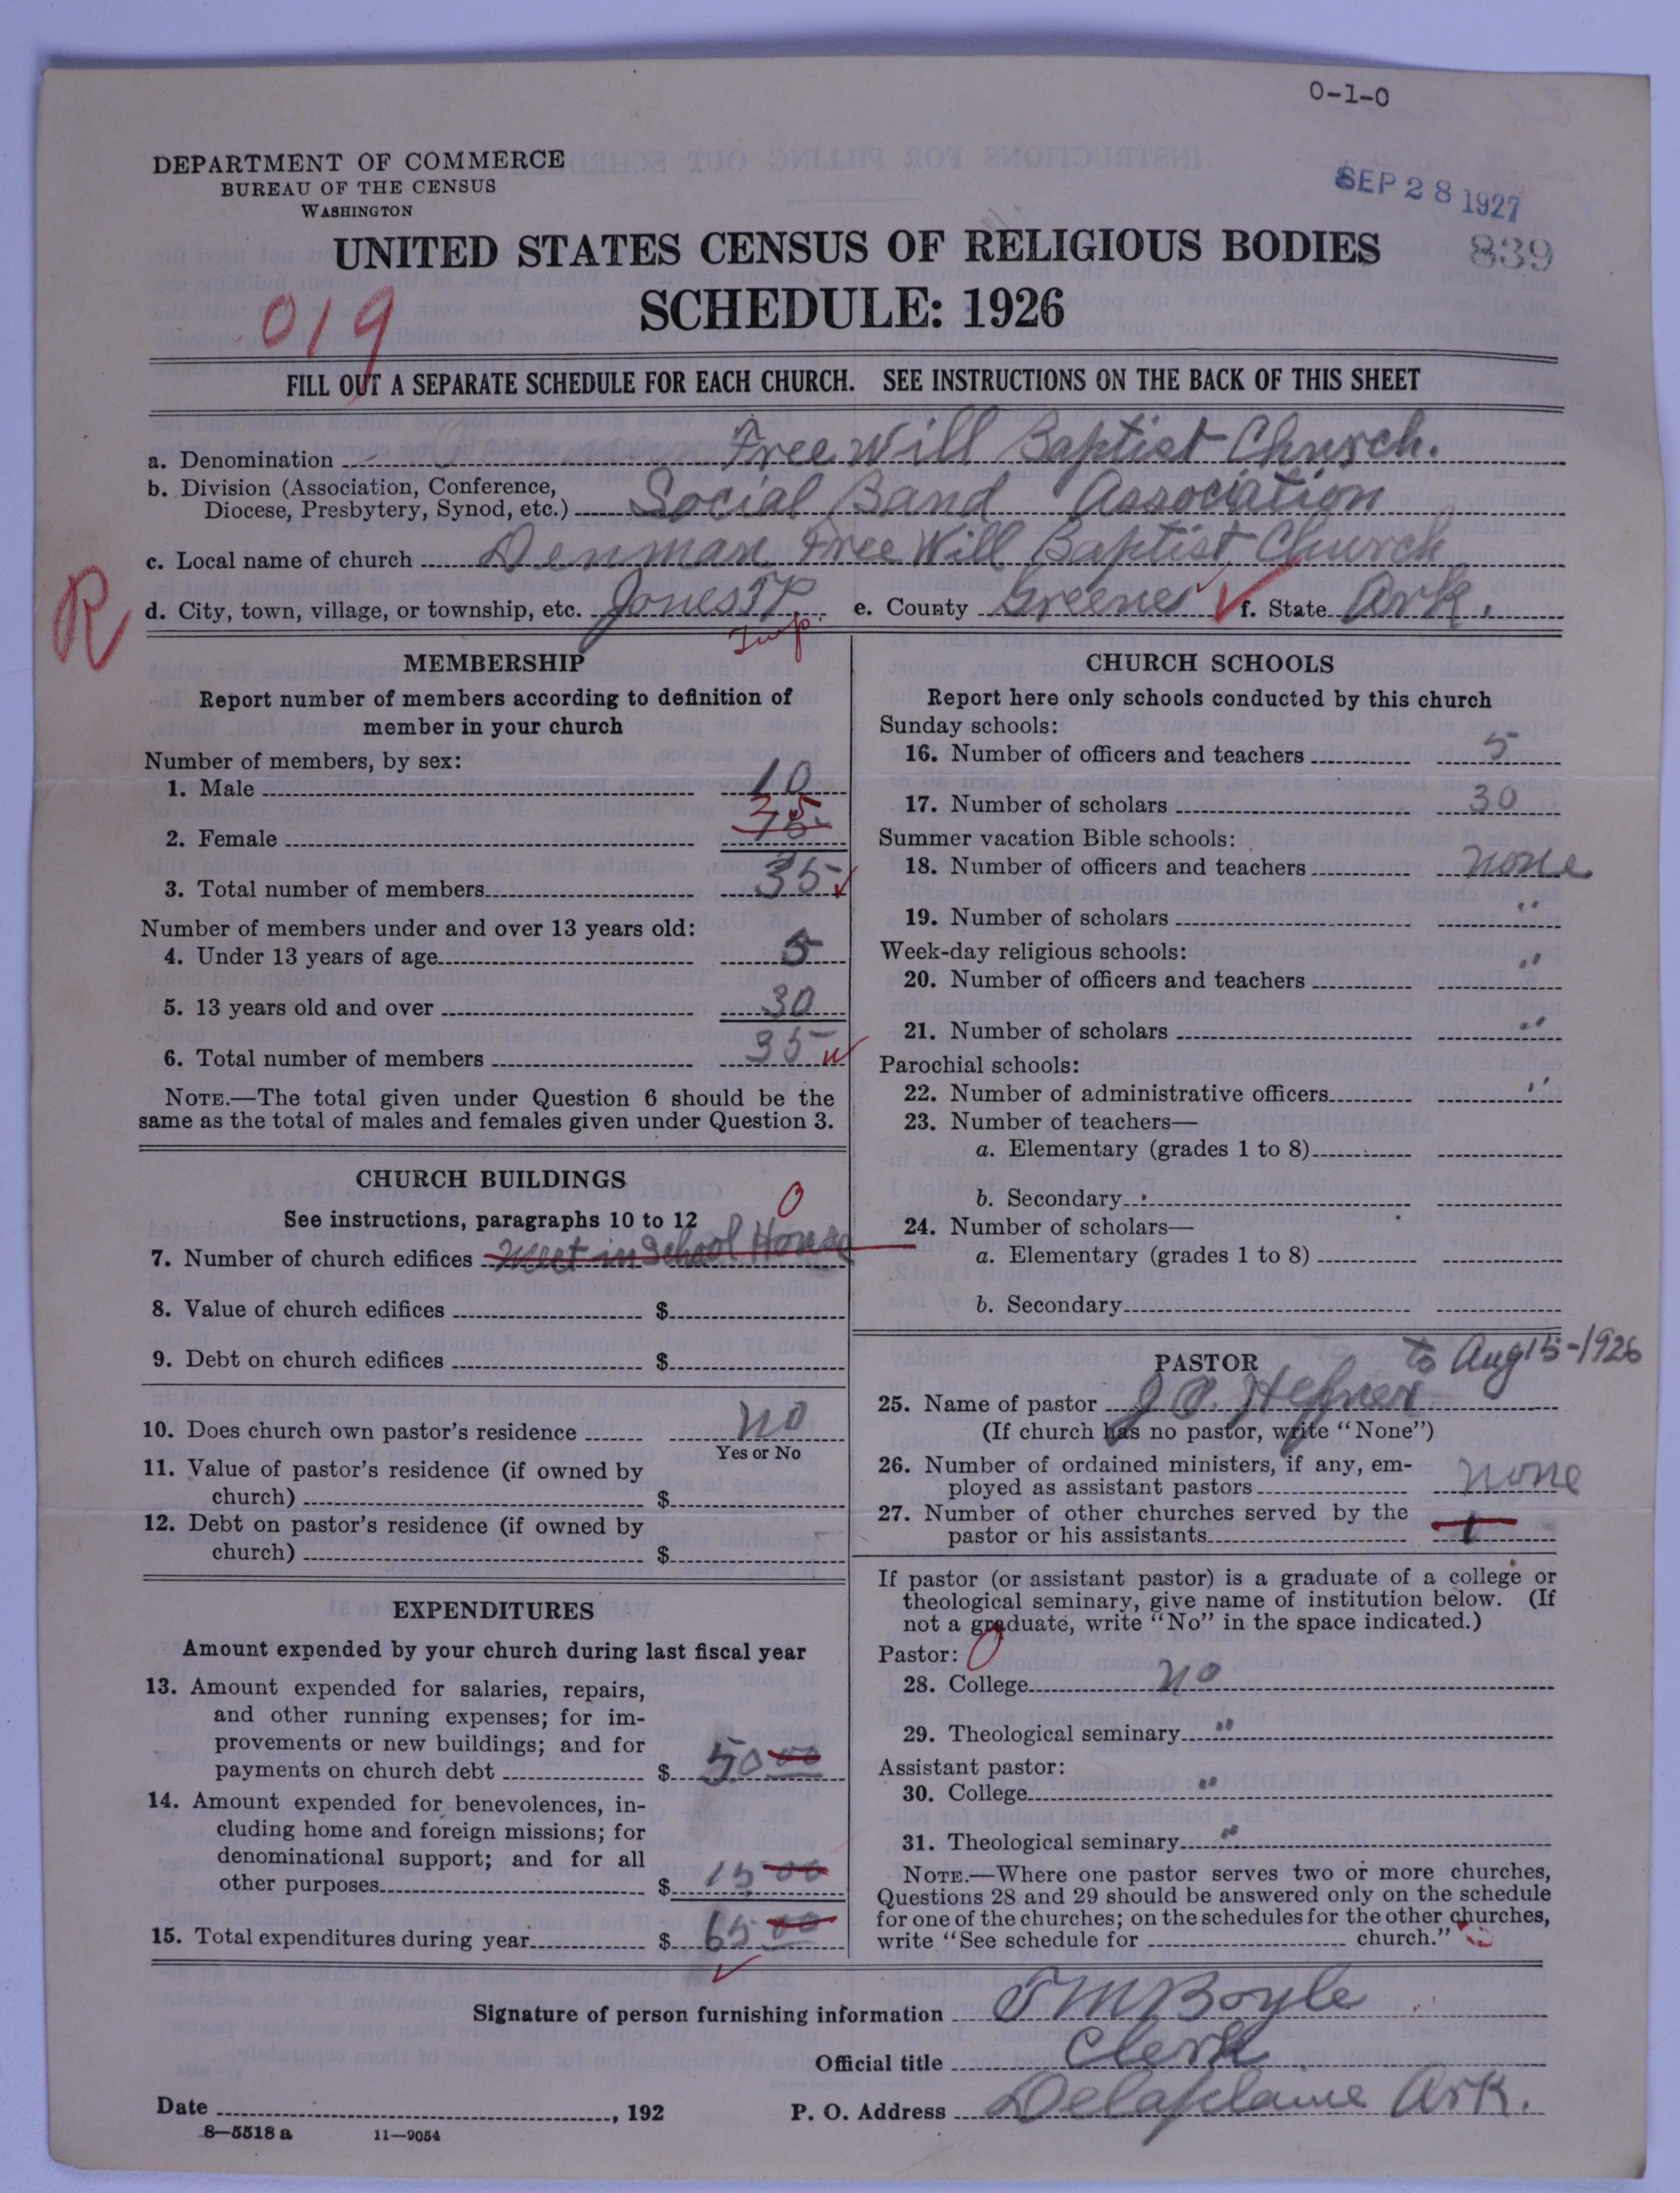 0-1-0
DEPARTMENT OF COMMERCE
BUREAU OF THE CENSUS
WASHINGTON
SEP 28 1927
UNITED STATES CENSUS OF RELIGIOUS BODIES
839
SCHEDULE: 1926
019
FILL OUT A SEPARATE SCHEDULE FOR EACH CHURCH. SEE INSTRUCTIONS ON THE BACK OF THIS SHEET
a. Denomination Free Will Baptist Church.
b. Division (Association, Conference,
Diocese, Presbytery, Synod, etc.) Social Band Association
c. Local name of church Denman Free Will Baptist Church
R
d. City, town, village, or township, etc. Jones TP. e. County Greene f. State Ark.
Twp.
MEMBERSHIP
Report number of members according to definition of
member in your church
Number of members, by sex:
1. Male 10
25
2. Female 15
3. Total number of members 35
Number of members under and over 13 years old:
4. Under 13 years of age 5
5. 13 years old and over 30
6. Total number of members 35
NOTE.—The total given under Question 6 should be the
same as the total of males and females given under Question 3.
CHURCH BUILDINGS
See instructions, paragraphs 10 to 12
0
7. Number of church edifices meet in School House
8. Value of church edifices $
9. Debt on church edifices $
10. Does church own pastor's residence no
Yes or No
11. Value of pastor's residence (if owned by
church) $
12. Debt on pastor's residence (if owned by
church) $
EXPENDITURES
Amount expended by your church during last fiscal year
13. Amount expended for salaries, repairs,
and other running expenses; for im-
provements or new buildings; and for
payments on church debt $ 50 00
14. Amount expended for benevolences, in-
cluding home and foreign missions; for
denominational support; and for all
other purposes $ 15 00
15. Total expenditures during year $ 65 00
CHURCH SCHOOLS
Report here only schools conducted by this church
Sunday schools:
16. Number of officers and teachers 5
17. Number of scholars 30
Summer vacation Bible schools:
18. Number of officers and teachers none
19. Number of scholars "
Week-day religious schools:
20. Number of officers and teachers "
21. Number of scholars "
Parochial schools:
22. Number of administrative officers "
23. Number of teachers—
a. Elementary (grades 1 to 8)
b. Secondary
24. Number of scholars—
a. Elementary (grades 1 to 8)
b. Secondary
PASTOR to Aug 15-1926
25. Name of pastor J.O. Hefner
(If church has no pastor, write "None")
26. Number of ordained ministers, if any, em-
ployed as assistant pastors none
27. Number of other churches served by the
pastor or his assistants 1
If pastor (or assistant pastor) is a graduate of a college or
theological seminary, give name of institution below. (If
not a graduate, write "No" in the space indicated.)
Pastor: 0
28. College no
29. Theological seminary "
Assistant pastor:
30. College "
31. Theological seminary "
NOTE.—Where one pastor serves two or more churches,
Questions 28 and 29 should be answered only on the schedule
for one of the churches; on the schedules for the other churches,
write "See schedule for church."
Signature of person furnishing information TM Boyle
Official title Clerk
Date , 192 P. O. Address Delaplaine Ark.
8—5518 a 11—9054